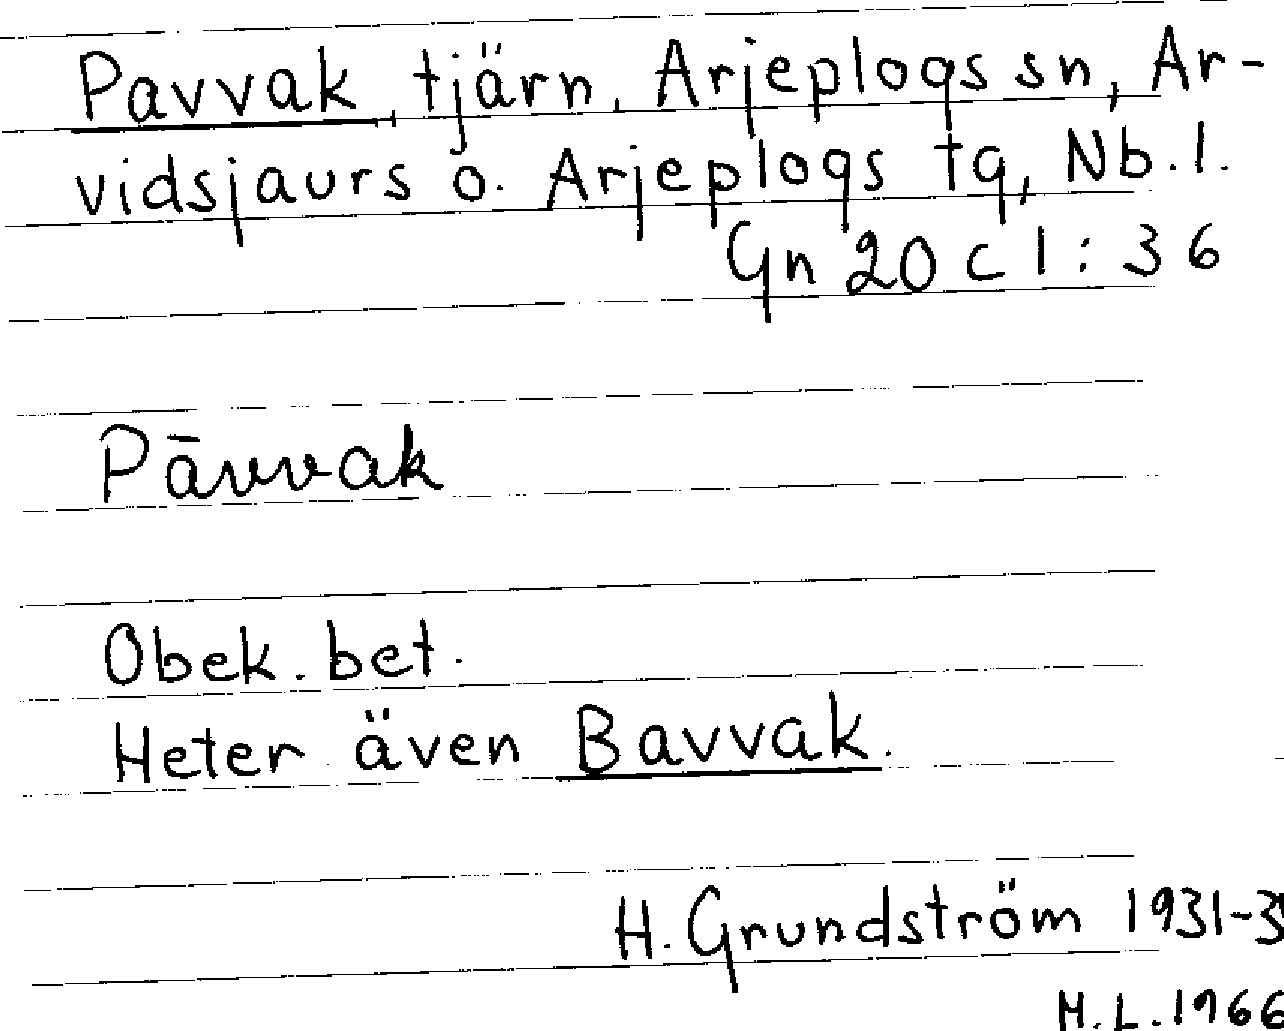 Pavvak, tjärn, Arjeplogs sn, Ar-
vidsjaurs o. Arjeplogs tg, Nb. l.
Gn 20 c 1 : 36
Pāvvak
Obek. bet.
Heter även Bavvak.
H. Grundström 1931-3
H. L. 1966